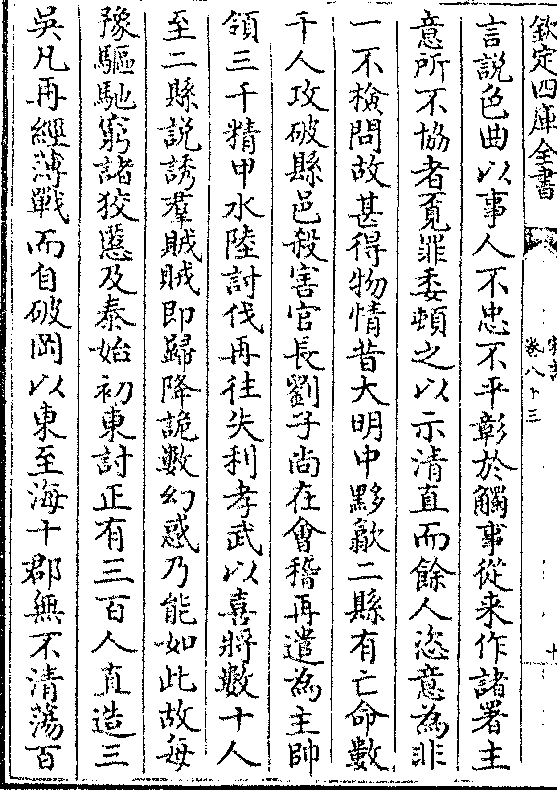 欽定四庫全書
卷八十三
言説色曲以事人不忠不平彰於觸事從来作諸署主
意所不協者覔罪委頓之以示清直而餘人恣意為非
一不檢問故甚得物情昔大明中黟歙二縣有亡命數
千人攻破縣邑殺害官長劉子尚在會稽再遣為主帥
領三千精甲水陸討伐再往失利孝武以喜將數十人
至二縣説誘羣賊賊即歸降詭數幻惑乃能如此故每
豫驅馳窮諸狡慝及泰始初東討正有三百人直造三
吳凡再經薄戰而自破岡以東至海十郡無不清蕩百